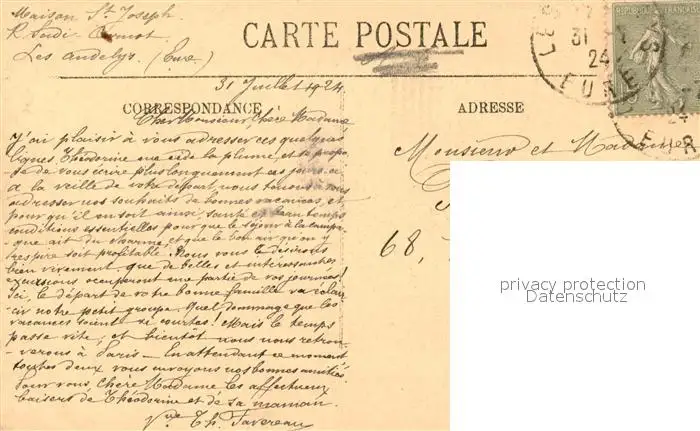 Maison St. Joseph
R. Sadi-Carnot
Les Andelys. (Eure)
CARTE POSTALE
31 Juillet 1924
CORRESPONDANCE
ADRESSE
Cher Monsieur, chère Madame
J'ai plaisir à vous adresser ces quelques
lignes. Théodorine me cède la plume, et se propo-
se de vous écrire plus longuement ces jours-ci
A la veille de votre départ, nous tenons à vous
adresser nos souhaits de bonnes vacances, et
pour qu'il en soit ainsi, santé et beau temps
conditions essentielles pour que le séjour à la campa-
gne ait du charme, et que le bon air qu'on y
respire soit profitable. Nous vous le désirons
bien vivement, que de belles et intéressantes
excursions occuperont une partie de vos journées!
Ici, le départ de votre bonne famille va éclair-
cir notre petit groupe. Quel dommage que les
vacances soient si courtes! Mais le temps
passe vite, et bientôt nous nous retrou-
verons à Paris - En attendant ce moment
toutes deux vous envoyons nos bonnes amitiés
Pour vous, chère Madame les affectueux
baisers de Théodorine et de sa maman.
Vve Th. Favereau
Monsieur et Madame
68,
REPUBLIQUE FRANÇAISE
31
24
EURE
privacy protection
Datenschutz